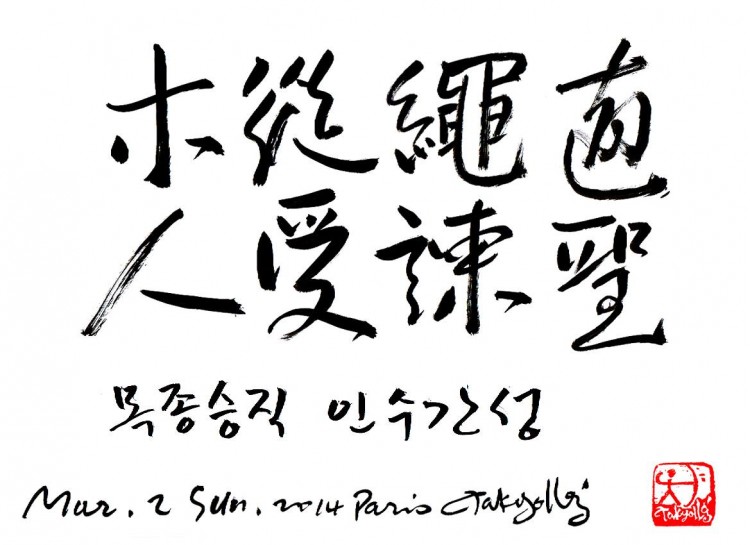 木從繩直
人受諫聖
목종승직 인수간성
Mar. 2 Sun. 2014 Paris Takyollg